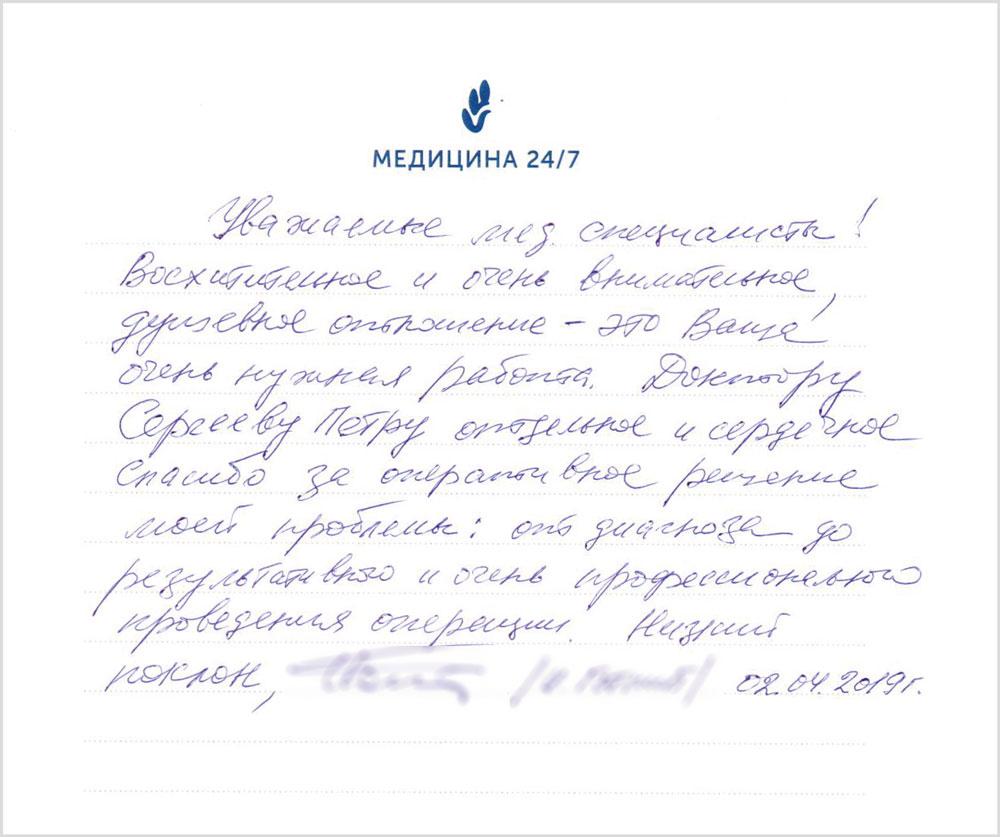 МЕДИЦИНА 24/7
Уважаемые мед. специалисты!
Восхитительное и очень внимательное,
душевное отношение – это Ваша
очень нужная работа. Доктору
Сергееву Петру отдельное и сердечное
спасибо за оперативное решение
моей проблемы: от диагноза до
результативного и очень профессионального
проведения операции. Низкий
поклон, 02.04.2019г.